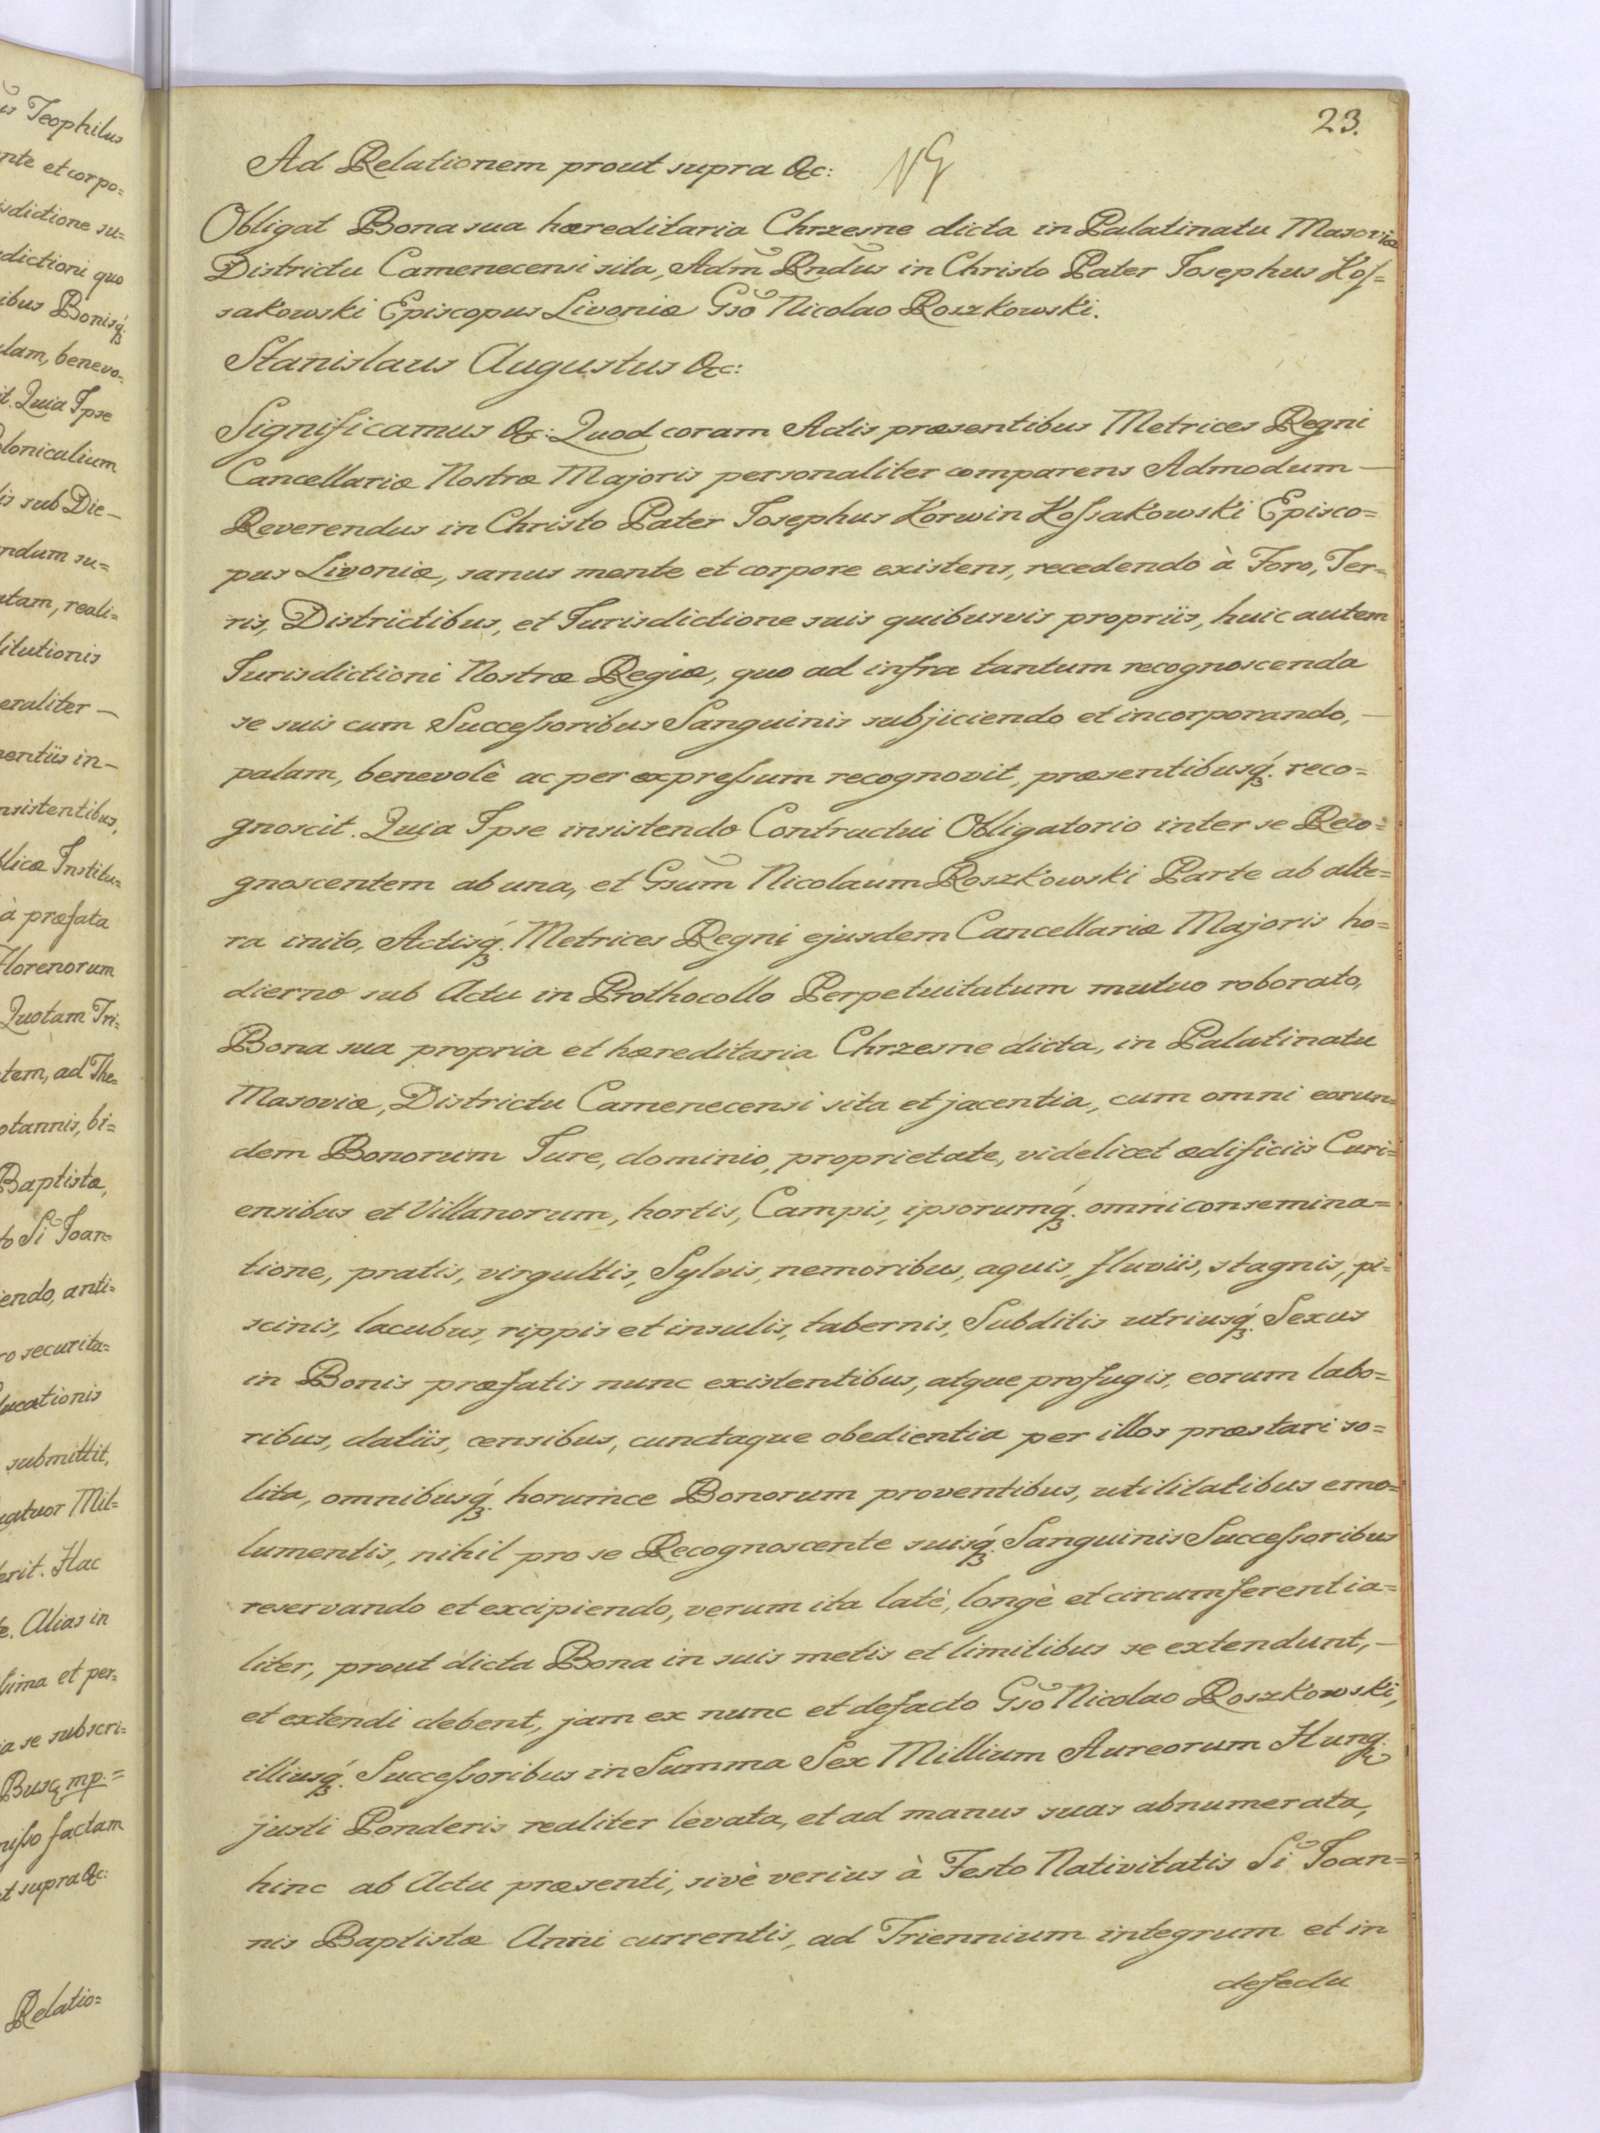 ūs Teophilus
nte et corpo=
isdictione su=
dictioni quo
ibus Bonisq́ꝫ
lam, benevo=
it. Quia Ipse
lonicalium
is sub Die —
ndum su=
atam, reali=
titutionis
eraliter —
mentiis in —
nsistentibus,
blicæ Institu=
à præfata
Florenorum
Quotam Tri=
tem, ad The=
otannis, bi=
Baptistæ,
to S̃i Joan=
iendo, anti=
ro securita=
ducationis
submittit,
uatuor Mil=
erit. Hac
te. Alias in
sima et per=
ia se subscri=
Busq mp =
miſso factam
t supra &c:
Relatio=
23.
Ad Relationem prout supra &c: NG
Obligat Bona sua hæreditaria Chrzesne dicta in Palatinatu Masoviæ
Districtu Camenecensi sita, Adm̃ Rndũs in Christo Pater Josephus Koſ=
sakowski Episcopus Livoniæ Gsõ Nicolao Roszkowski.
Stanislaus Augustus &c:
Significamus &c: Quod coram Actis præsentibus Metrices Regni
Cancellariæ Nostræ Majoris personaliter comparens Admodum —
Reverendus in Christo Pater Josephus Korwin Koſsakowski Episco=
pus Livoniæ, sanus mente et corpore existens, recedendo à Foro, Ter=
ris, Districtibus, et Jurisdictione suis quibusvis propriis, huic autem
Jurisdictioni Nostræ Regiæ, quo ad infra tantum recognoscenda
se suis cum Succeſsoribus Sanguinis subjiciendo et incorporando, —
palam, benevolè ac per expreſsum recognovit, præsentibusq́ꝫ. reco=
gnoscit. Quia Ipse insistendo Contractui Obligatorio inter se Reco=
gnoscentem ab una, et Gsum̃ Nicolaum Roszkowski Parte ab alte=
ra inito, Actisq́ꝫ. Metrices Regni ejusdem Cancellariæ Majoris ho=
dierno sub Actu in Prothocollo Perpetuitatum mutuo roborato,
Bona sua propria et hæreditaria Chrzesne dicta, in Palatinatu
Masoviæ, Districtu Camenecensi sita et jacentia, cum omni eorun=
dem Bonorum Jure, dominio, proprietate, videlicet ædificiis Curi=
ensibus et Villanorum, hortis, Campis, ipsorumq́ꝫ. omni consemina=
tione, pratis, virgultis, Sylvis, nemoribus, aquis, fluviis, stagnis, pi=
scinis, lacubus, rippis et insulis, tabernis, Subditis utriusq́ꝫ. Sexus
in Bonis præfatis nunc existentibus, atque profugis, eorum labo=
ribus, datiis, censibus, cunctaque obedientia per illos præstari so=
lita, omnibusq́ꝫ. horumce Bonorum proventibus, utilitatibus emo=
lumentis, nihil pro se Recognoscente suisq́ꝫ. Sanguinis Succeſsoribus
reservando et excipiendo, verum ita latè, longè et circumferentia=
liter, prout dicta Bona in suis metis et limitibus se extendunt, —
et extendi debent, jam ex nunc et defacto Gsõ Nicolao Roszkowski,
illiusq́ꝫ. Succeſsoribus in Summa Sex Millium Aureorum Hung:
justi Ponderis realiter levata, et ad manus suas abnumerata,
hinc ab Actu præsenti, sivè verius à Festo Nativitatis S̃i Joan=
nis Baptistæ Anni currentis, ad Triennium integrum et in
defectu